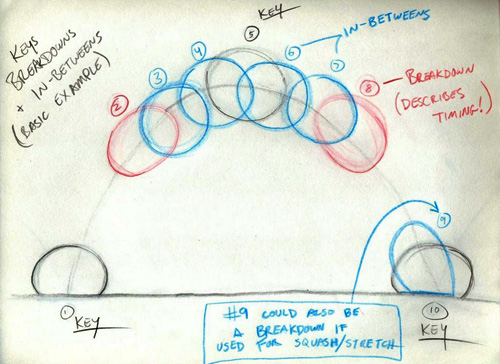 KEYS
BREAKDOWNS
+ IN-BETWEENS
(BASIC EXAMPLE)
KEY
5
IN-BETWEENS
4
6
3
7
2
8
BREAKDOWN
(DESCRIBES
TIMING!)
9
1
KEY
10
KEY
#9 COULD ALSO BE
A BREAKDOWN IF
USED FOR SQUASH/STRETCH